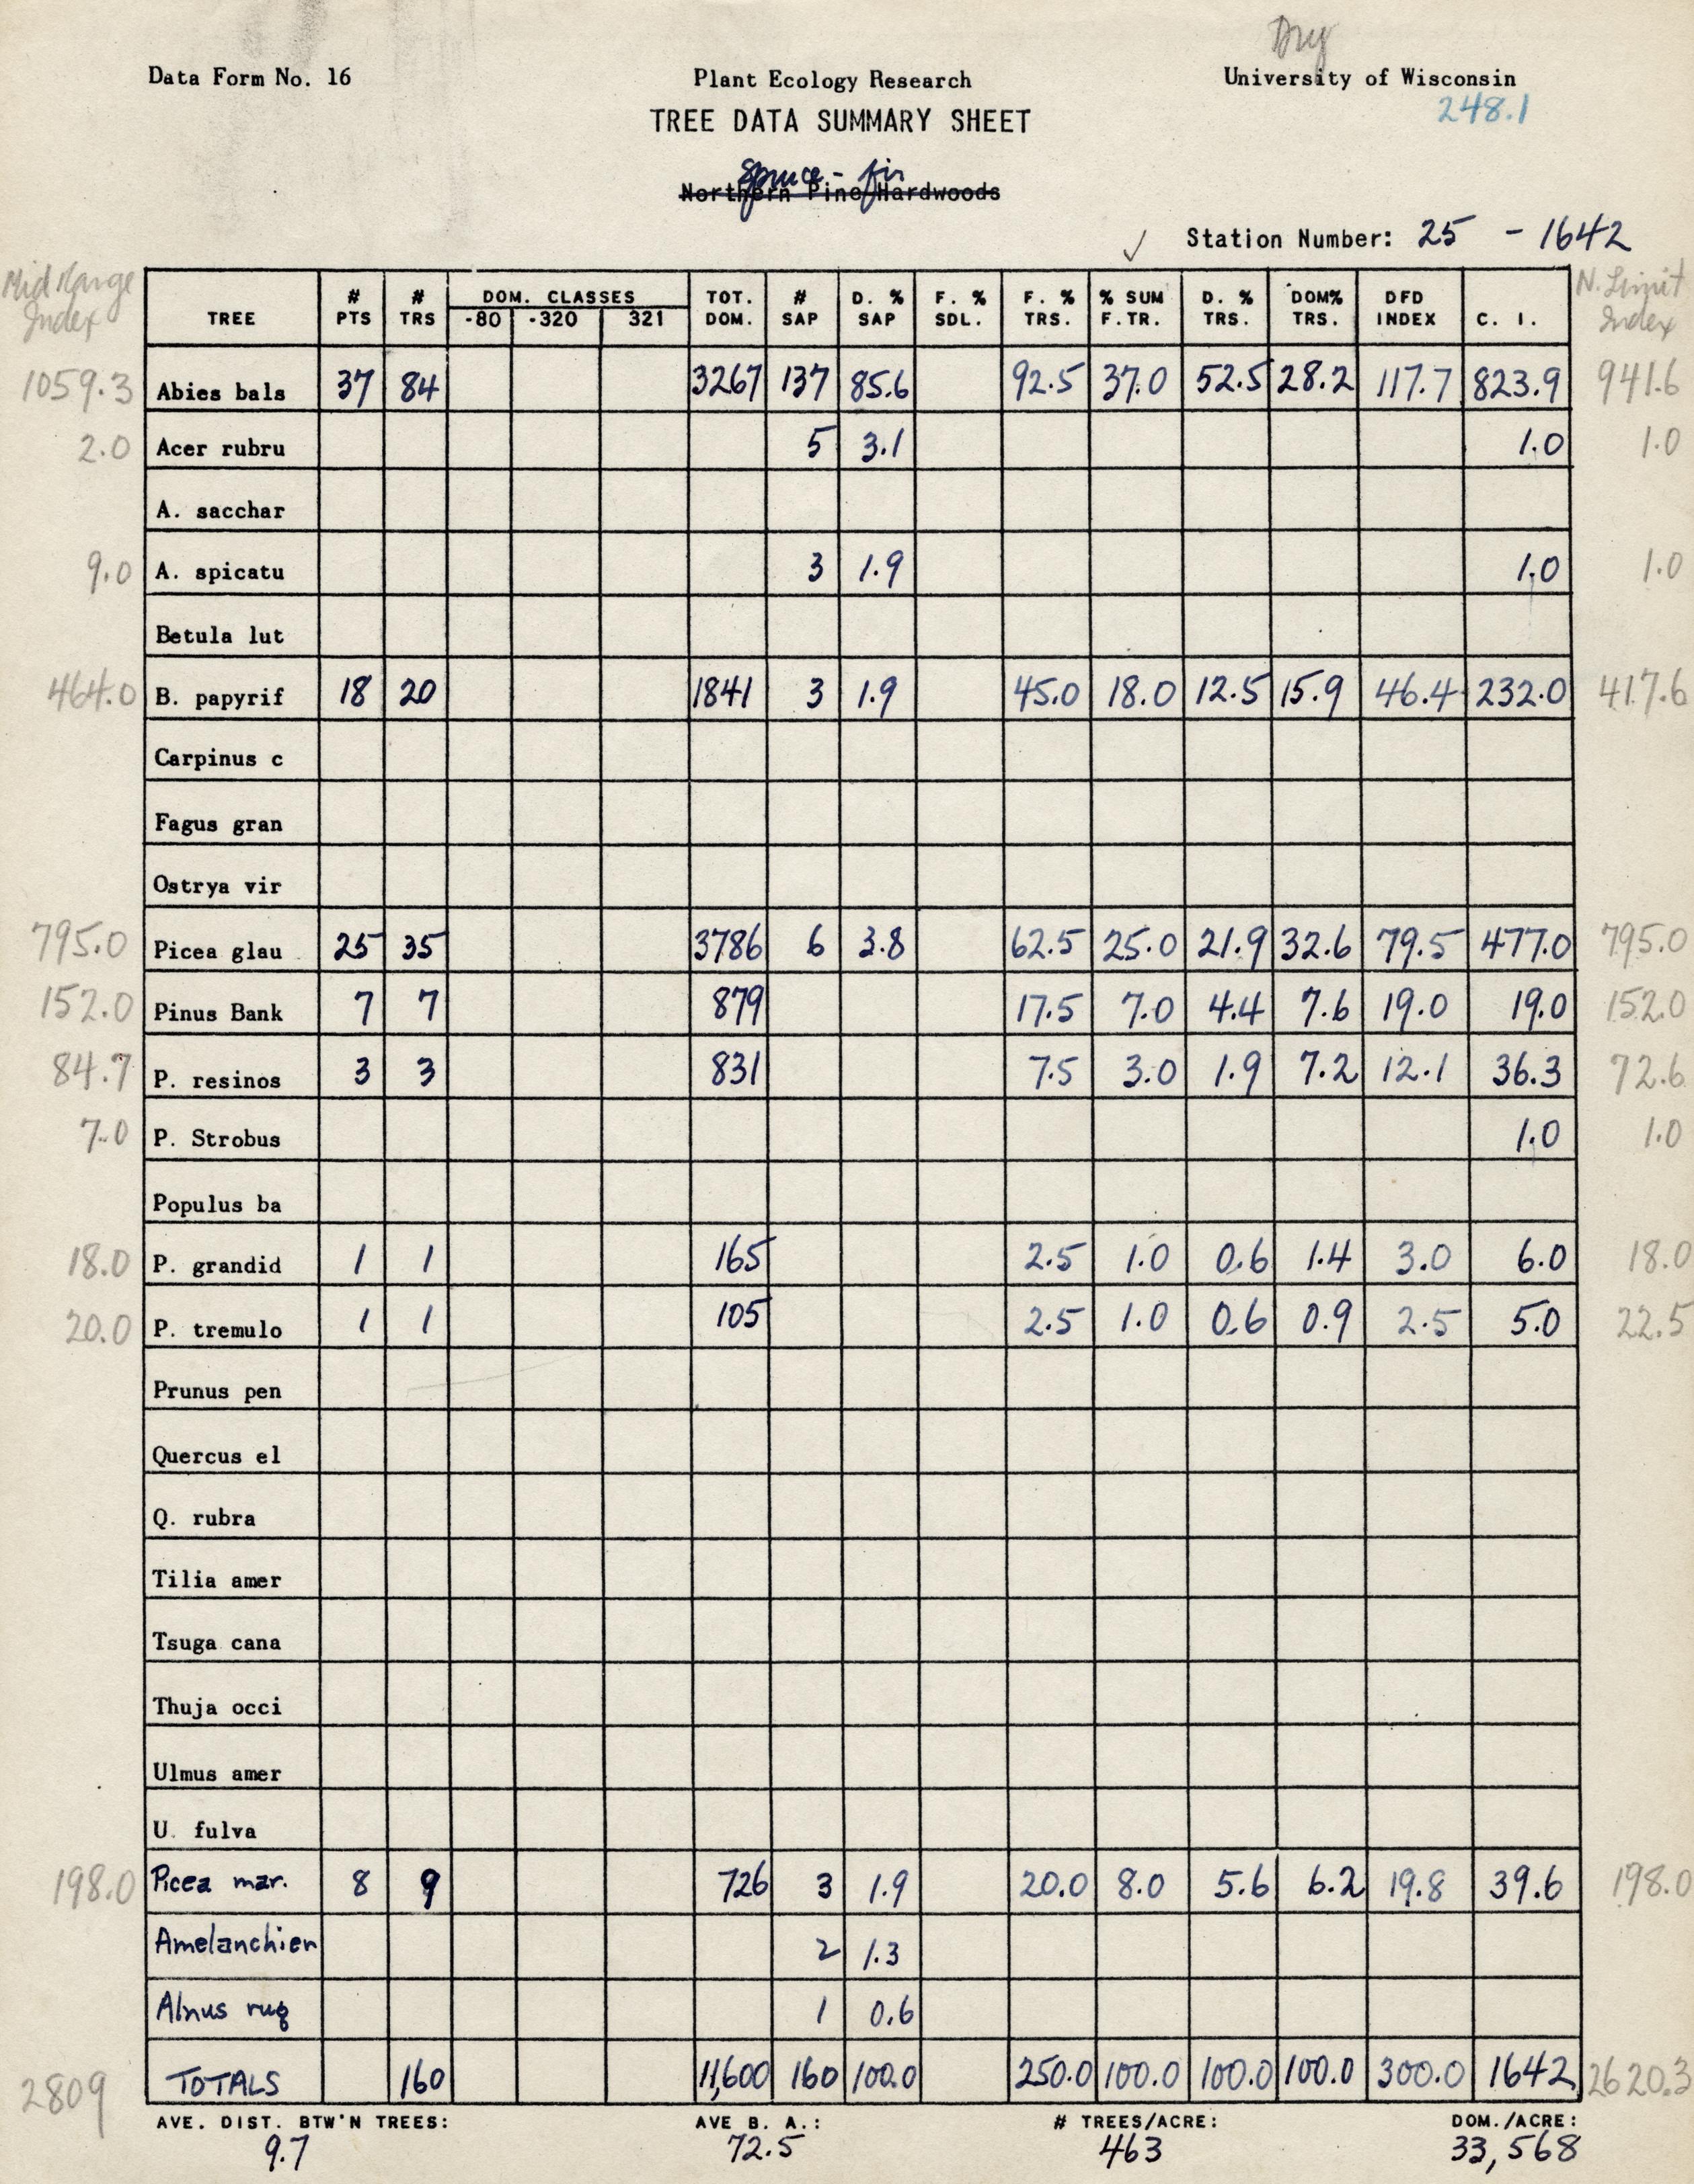 Dry
Data Form No. 16 Plant Ecology Research University of Wisconsin
TREE DATA SUMMARY SHEET 248.1
Spruce - fir
Northern Pine Hardwoods
✓ Station Number: 25 - 1642
Mid Range Index TREE # PTS # TRS DOM. CLASSES -80 -320 321 TOT. DOM. # SAP D. % SAP F. % SDL. F. % TRS. % SUM F. TR. D. % TRS. DOM% TRS. DFD INDEX C. I. N. Limit Index
1059.3 Abies bals 37 84 3267 137 85.6 92.5 37.0 52.5 28.2 117.7 823.9 941.6
2.0 Acer rubru 5 3.1 1.0 1.0
A. sacchar
9.0 A. spicatu 3 1.9 1.0 1.0
Betula lut
464.0 B. papyrif 18 20 1841 3 1.9 45.0 18.0 12.5 15.9 46.4 232.0 417.6
Carpinus c
Fagus gran
Ostrya vir
795.0 Picea glau 25 35 3786 6 3.8 62.5 25.0 21.9 32.6 79.5 477.0 795.0
152.0 Pinus Bank 7 7 879 17.5 7.0 4.4 7.6 19.0 19.0 152.0
84.7 P. resinos 3 3 831 7.5 3.0 1.9 7.2 12.1 36.3 72.6
7.0 P. Strobus 1.0 1.0
Populus ba
18.0 P. grandid 1 1 165 2.5 1.0 0.6 1.4 3.0 6.0 18.0
20.0 P. tremulo 1 1 105 2.5 1.0 0.6 0.9 2.5 5.0 22.5
Prunus pen
Quercus el
Q. rubra
Tilia amer
Tsuga cana
Thuja occi
Ulmus amer
U. fulva
198.0 Picea mar. 8 9 726 3 1.9 20.0 8.0 5.6 6.2 19.8 39.6 198.0
Amelanchier 2 1.3
Alnus rug 1 0.6
2809 TOTALS 160 11,600 160 100.0 250.0 100.0 100.0 100.0 300.0 1642 2620.3
AVE. DIST. BTW'N TREES: AVE B. A.: # TREES/ACRE: DOM./ACRE:
9.7 72.5 463 33,568